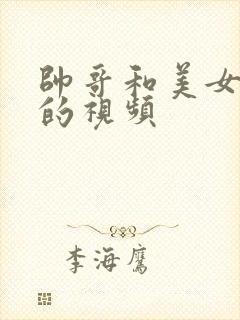 帥哥和美女
的視頻
李海鷹